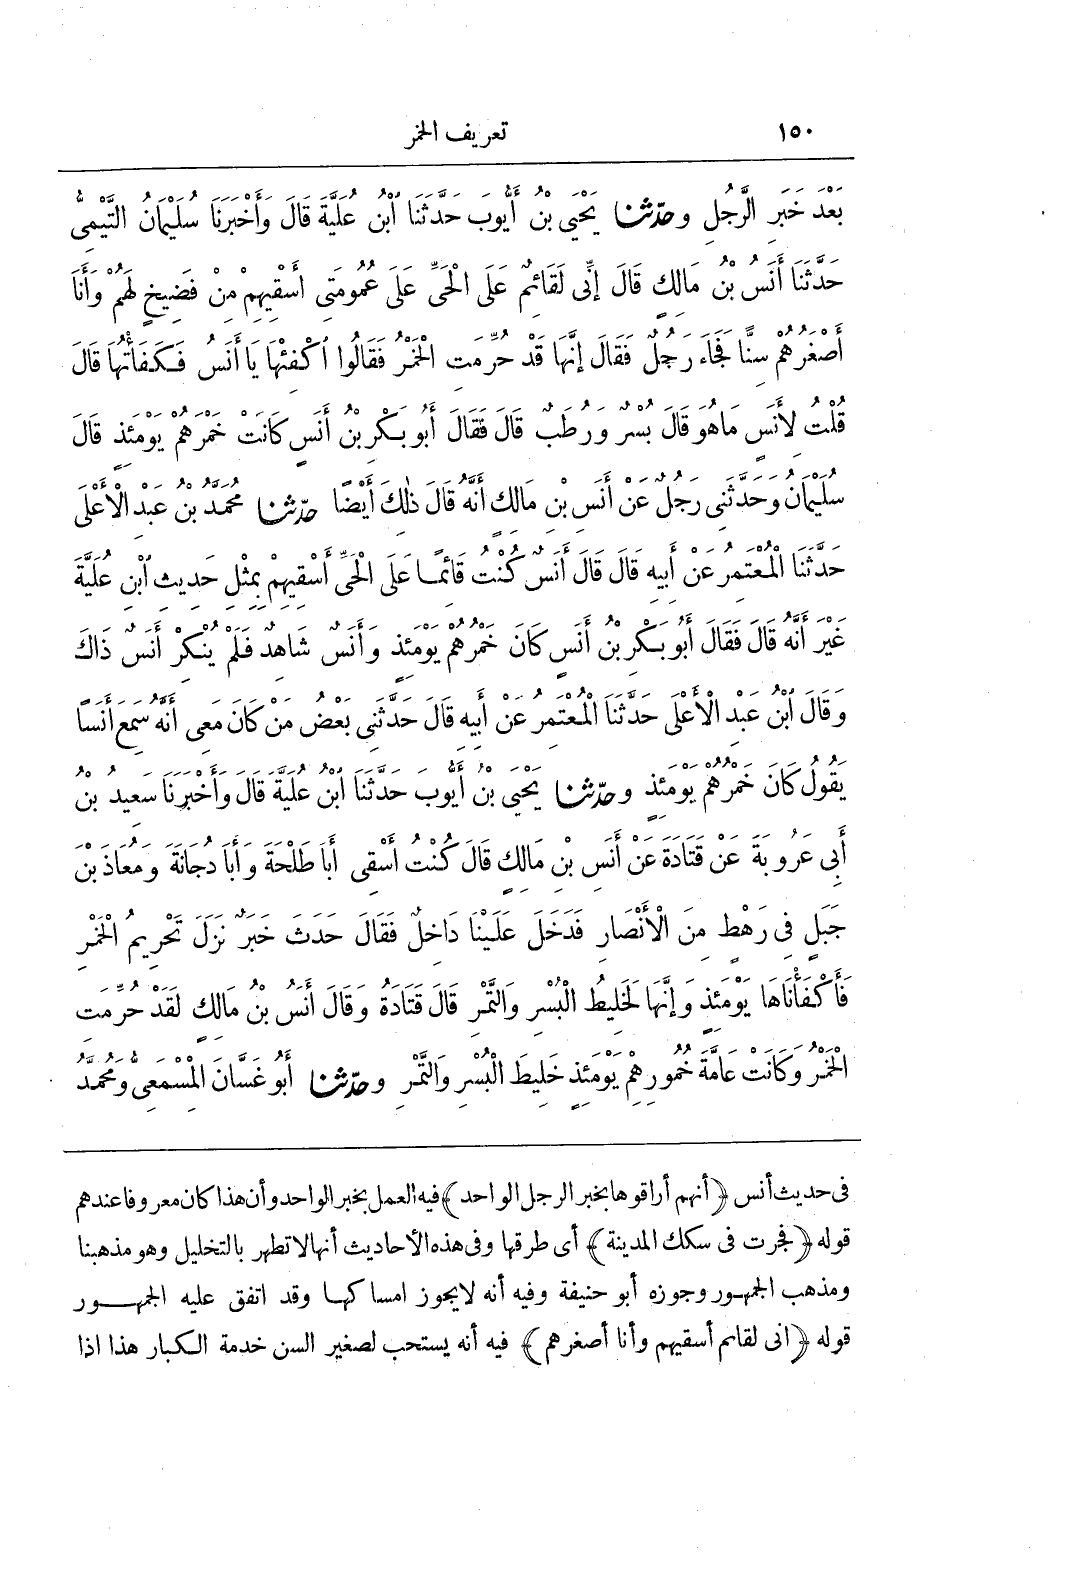 ١٥٠ تعريف الخمر
بَعْدَ خَبَرِ الرَّجُلِ وحَدَّثَنَا يَحْيَى بْنُ أَيُّوبَ حَدَّثَنَا ابْنُ عُلَيَّةَ قَالَ وَأَخْبَرَنَا سُلَيْمَانُ التَّيْمِىُّ
حَدَّثَنَا أَنَسُ بْنُ مَالِكٍ قَالَ إِنِّى لَقَائِمٌ عَلَى الْحَىِّ عَلَى عُمُومَتِى أَسْقِيهِمْ مِنْ فَضِيخٍ لَهُمْ وَأَنَا
أَصْغَرُهُمْ سِنًّا فَجَاءَ رَجُلٌ فَقَالَ إِنَّهَا قَدْ حُرِّمَتِ الْخَمْرُ فَقَالُوا اكْفِئْهَا يَا أَنَسُ فَكَفَأْتُهَا قَالَ
قُلْتُ لِأَنَسٍ مَا هُوَ قَالَ بُسْرٌ وَرُطَبٌ قَالَ فَقَالَ أَبُو بَكْرِ بْنُ أَنَسٍ كَانَتْ خَمْرَهُمْ يَوْمَئِذٍ قَالَ
سُلَيْمَانُ وَحَدَّثَنِى رَجُلٌ عَنْ أَنَسِ بْنِ مَالِكٍ أَنَّهُ قَالَ ذٰلِكَ أَيْضًا حَدَّثَنَا مُحَمَّدُ بْنُ عَبْدِ الْأَعْلَى
حَدَّثَنَا الْمُعْتَمِرُ عَنْ أَبِيهِ قَالَ قَالَ أَنَسٌ كُنْتُ قَائِمًا عَلَى الْحَىِّ أَسْقِيهِمْ بِمِثْلِ حَدِيثِ ابْنِ عُلَيَّةَ
غَيْرَ أَنَّهُ قَالَ فَقَالَ أَبُو بَكْرِ بْنُ أَنَسٍ كَانَ خَمْرَهُمْ يَوْمَئِذٍ وَأَنَسٌ شَاهِدٌ فَلَمْ يُنْكِرْ أَنَسٌ ذَاكَ
وَقَالَ ابْنُ عَبْدِ الْأَعْلَى حَدَّثَنَا الْمُعْتَمِرُ عَنْ أَبِيهِ قَالَ حَدَّثَنِى بَعْضُ مَنْ كَانَ مَعِى أَنَّهُ سَمِعَ أَنَسًا
يَقُولُ كَانَ خَمْرَهُمْ يَوْمَئِذٍ وحَدَّثَنَا يَحْيَى بْنُ أَيُّوبَ حَدَّثَنَا ابْنُ عُلَيَّةَ قَالَ وَأَخْبَرَنَا سَعِيدُ بْنُ
أَبِى عَرُوبَةَ عَنْ قَتَادَةَ عَنْ أَنَسِ بْنِ مَالِكٍ قَالَ كُنْتُ أَسْقِى أَبَا طَلْحَةَ وَأَبَا دُجَانَةَ وَمُعَاذَ بْنَ
جَبَلٍ فِى رَهْطٍ مِنَ الْأَنْصَارِ فَدَخَلَ عَلَيْنَا دَاخِلٌ فَقَالَ حَدَثَ خَبَرٌ نَزَلَ تَحْرِيمُ الْخَمْرِ
فَأَكْفَأْنَاهَا يَوْمَئِذٍ وَإِنَّهَا لَخَلِيطُ الْبُسْرِ وَالتَّمْرِ قَالَ قَتَادَةُ وَقَالَ أَنَسُ بْنُ مَالِكٍ لَقَدْ حُرِّمَتِ
الْخَمْرُ وَكَانَتْ عَامَّةَ خُمُورِهِمْ يَوْمَئِذٍ خَلِيطَ الْبُسْرِ وَالتَّمْرِ وحَدَّثَنَا أَبُو غَسَّانَ الْمِسْمَعِىُّ وَمُحَمَّدُ
فى حديث أنس ﴿أنهم أراقوها بخبر الرجل الواحد﴾ فيه العمل بخبر الواحد وأن هذا كان معروفا عندهم
قوله ﴿فجرت فى سكك المدينة﴾ أى طرقها وفى هذه الأحاديث أنها لا تطهر بالتخليل وهو مذهبنا
ومذهب الجمهور وجوزه أبو حنيفة وفيه أنه لا يجوز امساكها وقد اتفق عليه الجمهور
قوله ﴿انى لقائم أسقيهم وأنا أصغرهم﴾ فيه أنه يستحب لصغير السن خدمة الكبار هذا اذا